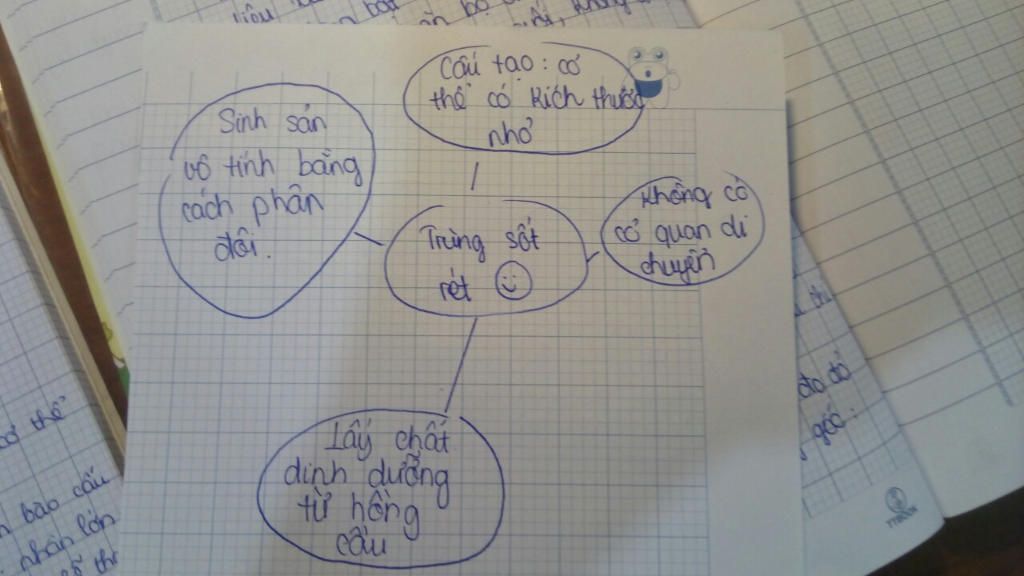 Cấu tạo: cơ
thể có kích thước
nhỏ
Sinh sản
vô tính bằng
cách phân
đôi.
Không có
cơ quan di
chuyển
Trùng sốt
rét
Lấy chất
dinh dưỡng
từ hồng
cầu
cơ thể
bào cấu
nhân lớn